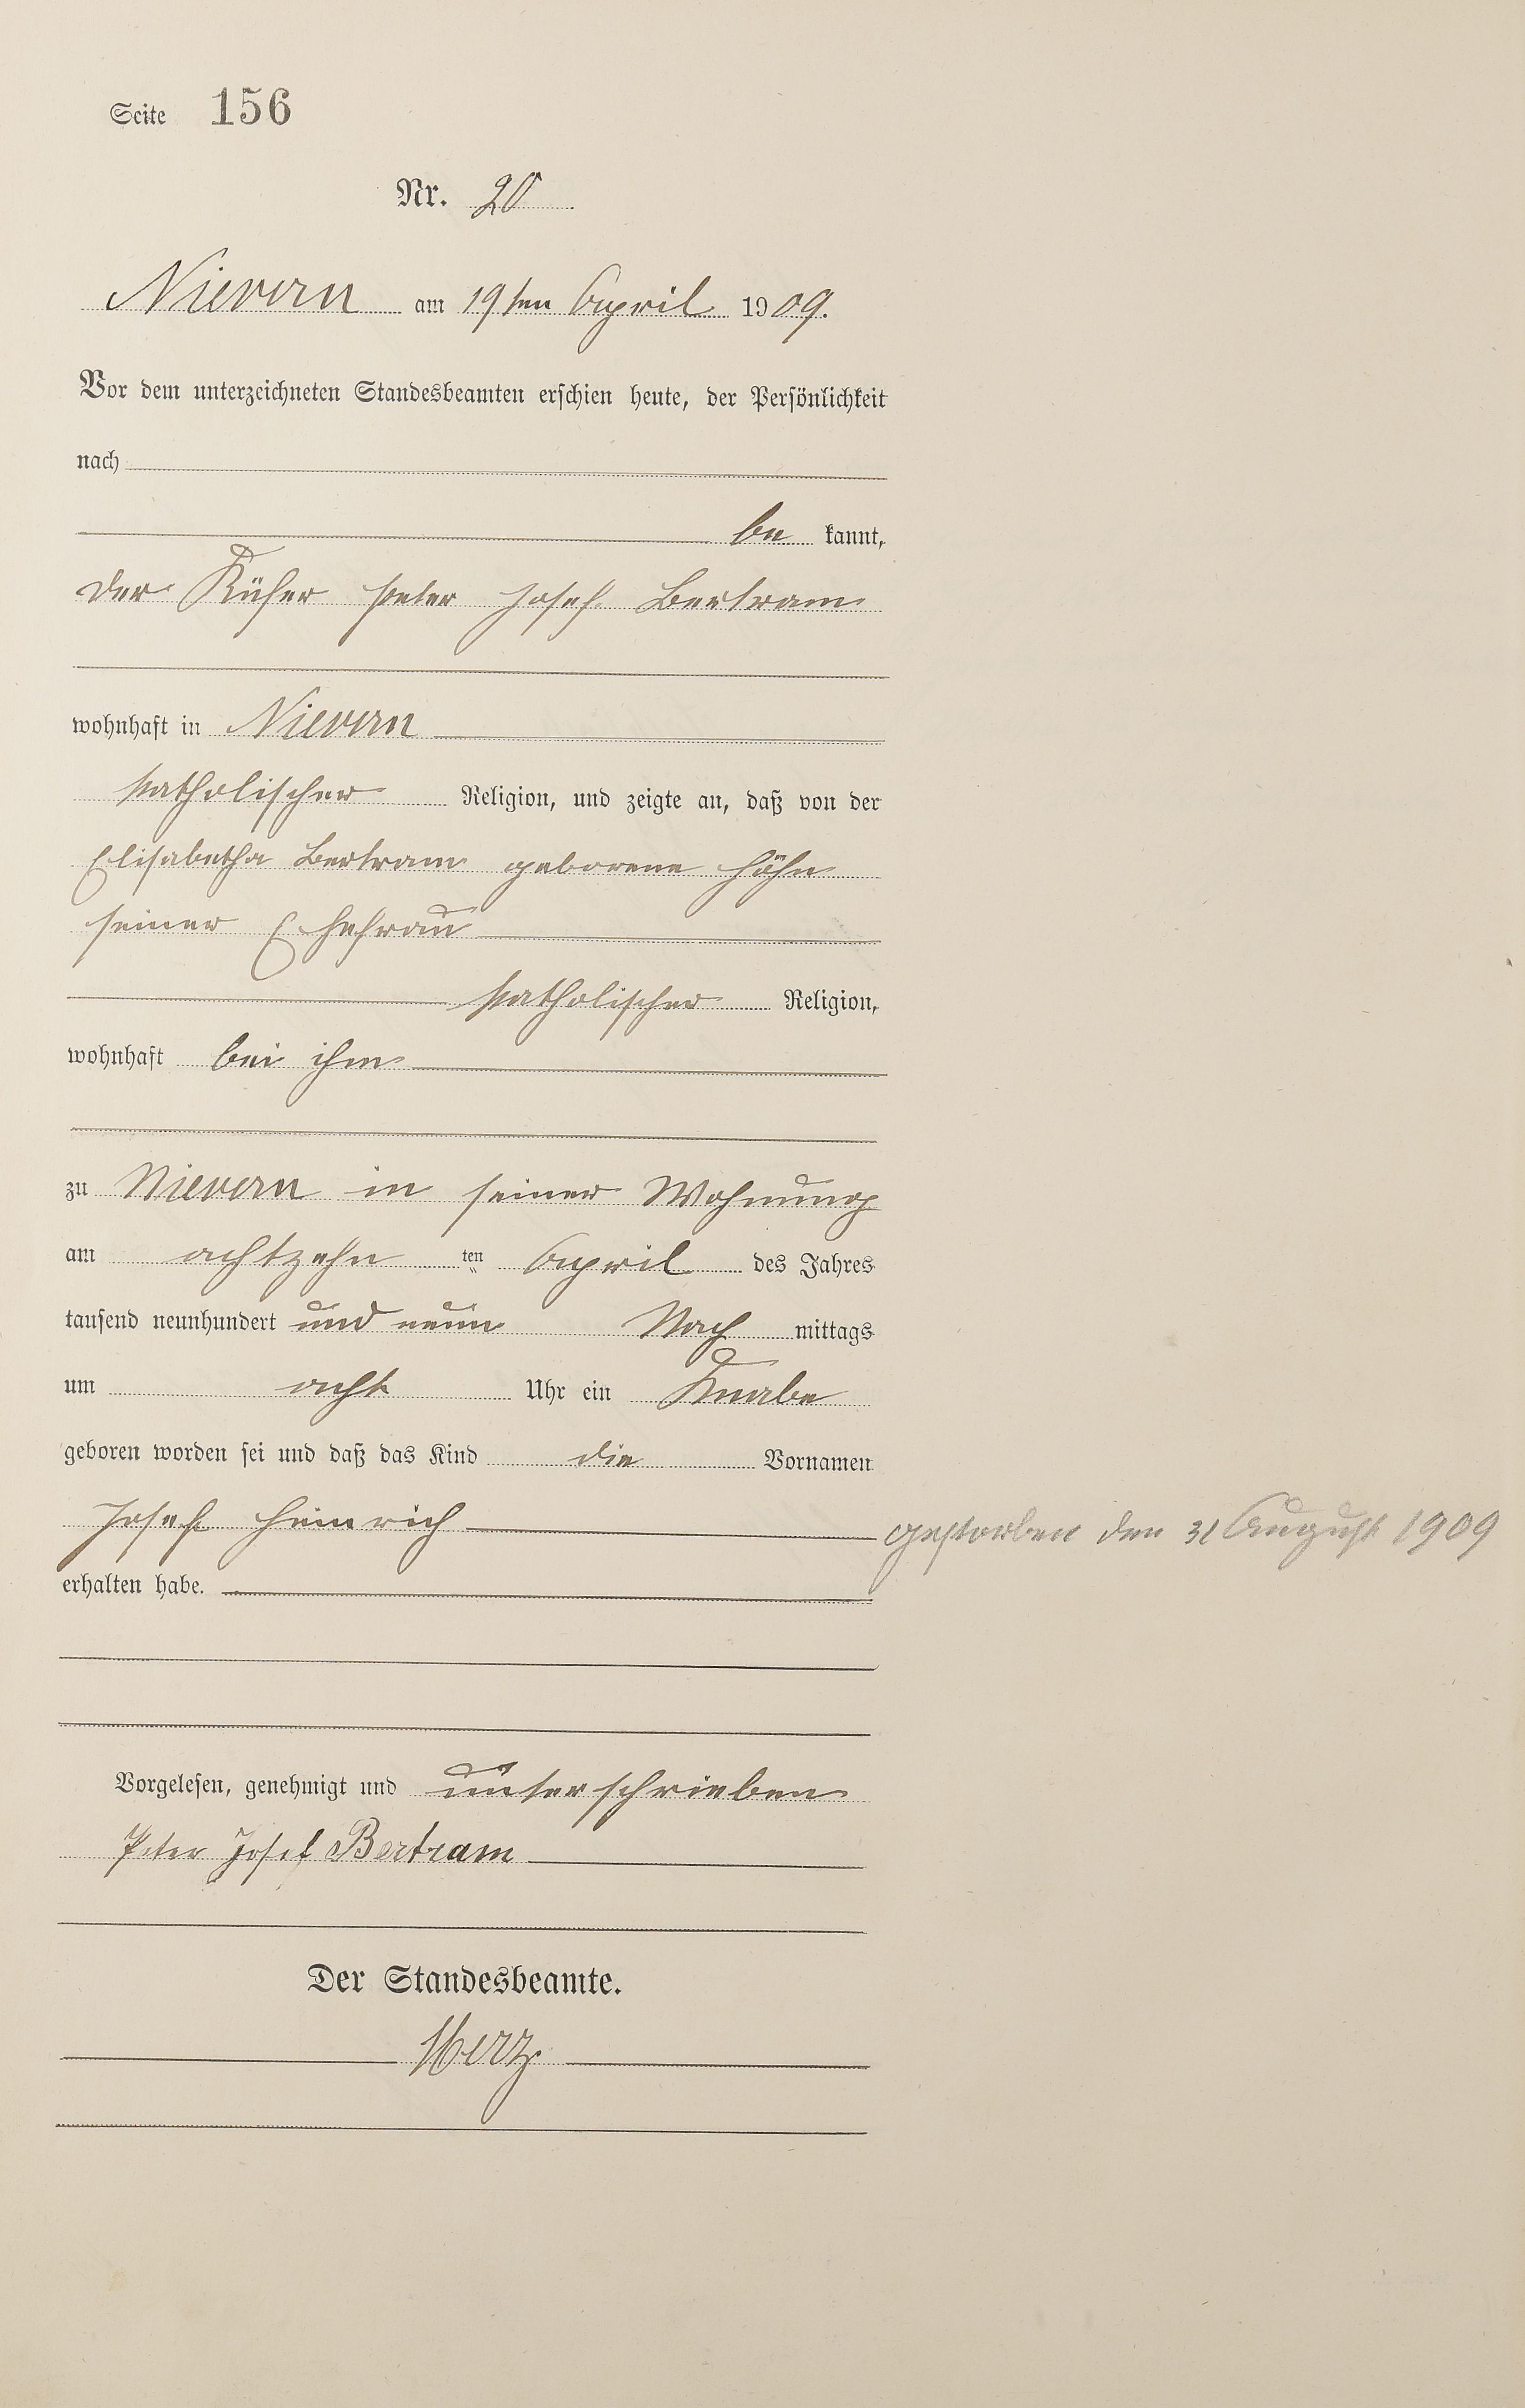 Seite 156
Nr. 20
Nievern am 19ten April 1909.
Vor dem unterzeichneten Standesbeamten erschien heute, der Persönlichkeit
nach
be kannt,
der Küfer Peter Josef Bertram
wohnhaft in Nievern
katholischer Religion, und zeigte an, daß von der
Elisabetha Bertram geborene Höhn
seiner Ehefrau
katholischer Religion,
wohnhaft bei ihm
zu Nievern in seiner Wohnung
am achtzehn ten April des Jahres
tausend neunhundert und neun Nach mittags
um acht Uhr ein Knabe
geboren worden sei und daß das Kind die Vornamen
Josef Heinrich
gestorben den 31 August 1909
erhalten habe.
Vorgelesen, genehmigt und unterschrieben
Peter Josef Bertram
Der Standesbeamte.
Herz